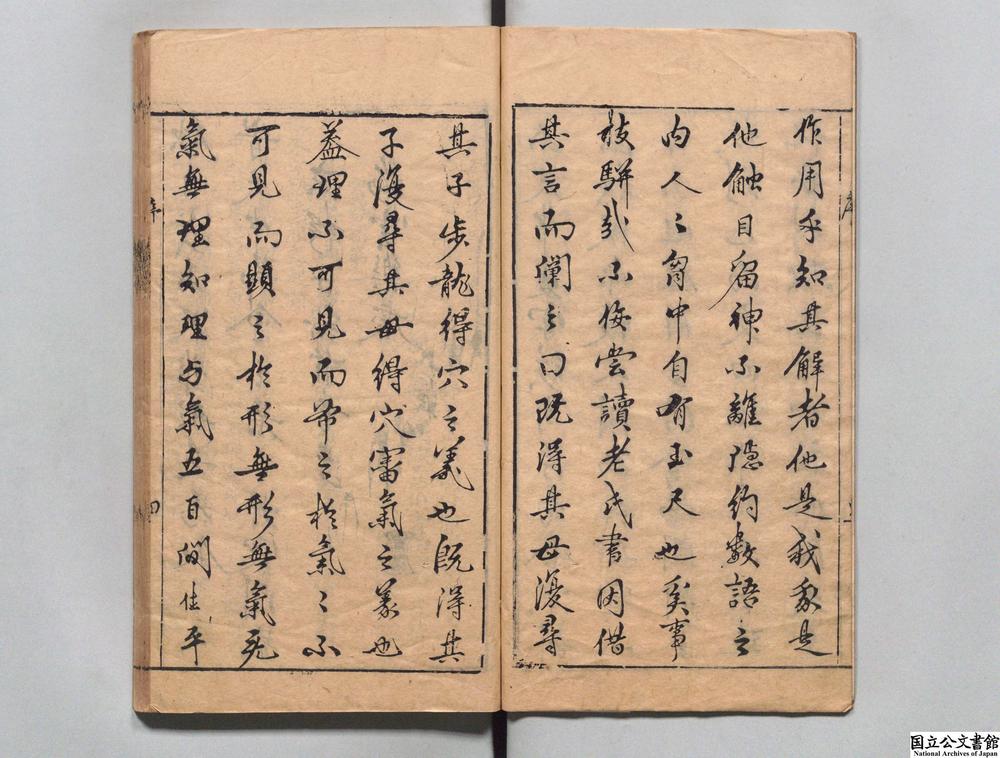 作用乎知其解者他是我我是
他触目留神不離隱約數語之
內人〻胷中自有玉尺也奚事
枝駢哉不佞嘗讀老氏書因借
其言而闡之曰既得其母復尋
其子步龍得穴之義也既得其
子復尋其母得穴審氣之義也
蓋理不可見而常之於氣〻不
可見而顯之於形無形無氣无
氣無理知理与氣五百間住乎
序
三
序
四
国立公文書館
National Archives of Japan